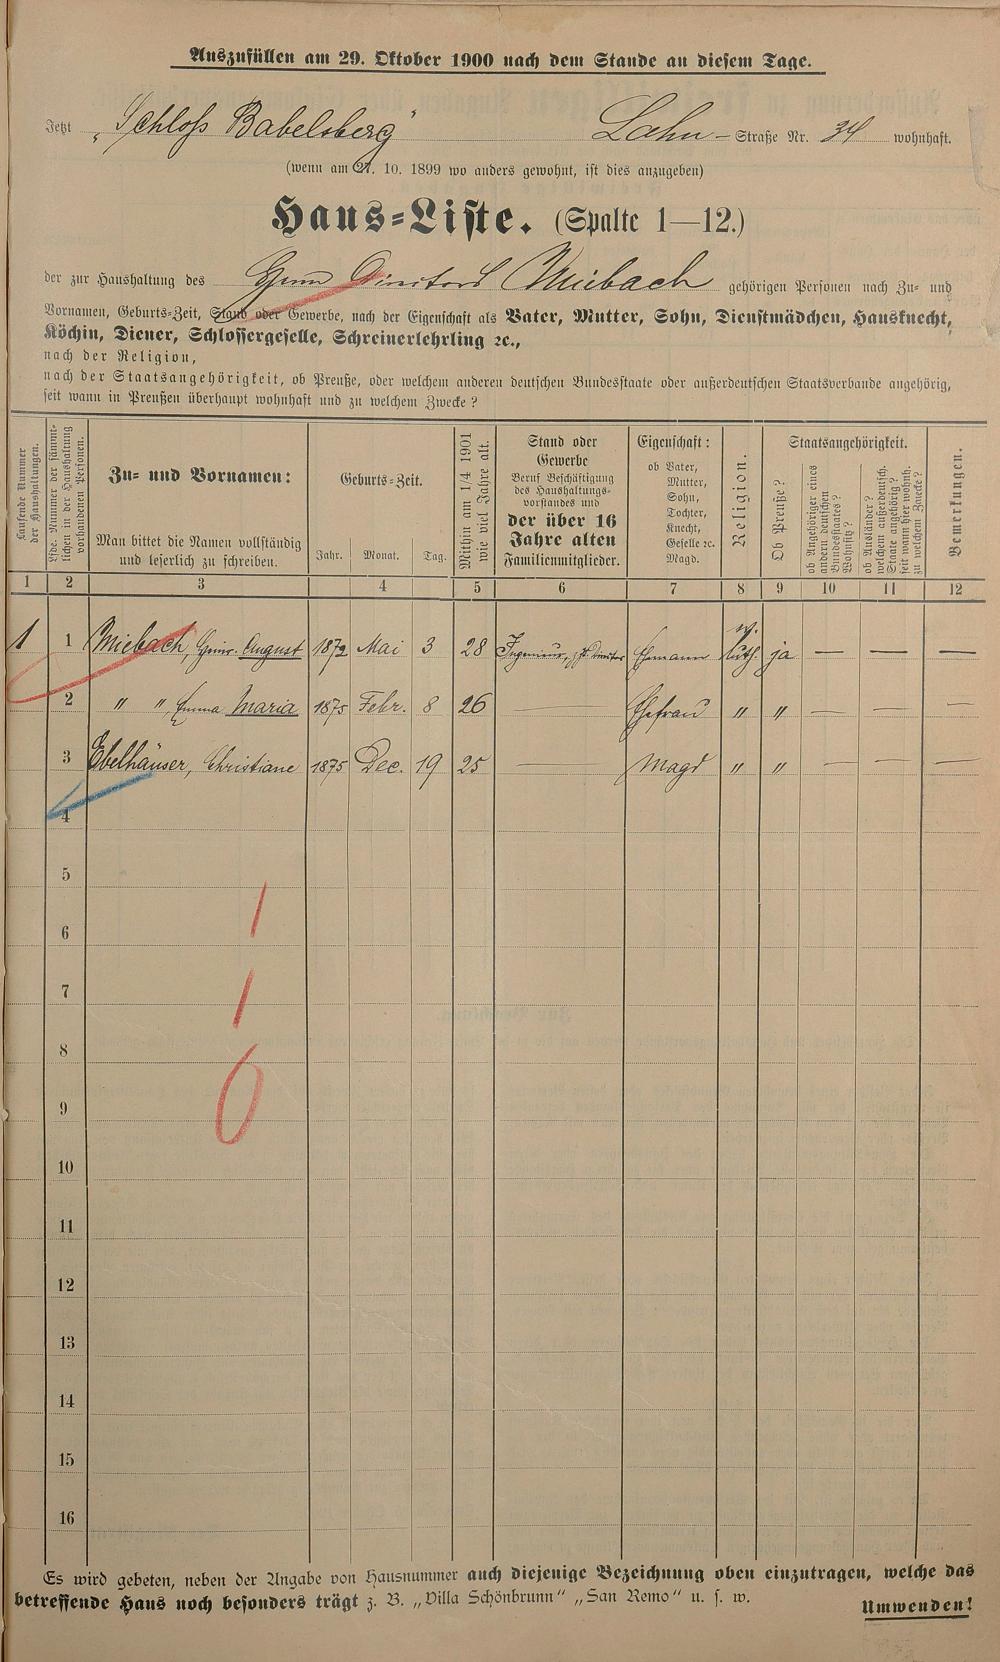 Auszufüllen am 29. Oktober 1900 nach dem Stande an diesem Tage.
Jetzt „Schloß Babelsberg“ Lahn - Straße Nr. 34 wohnhaft.
(wenn am 27. 10. 1899 wo anders gewohnt, ist dies anzugeben)
Haus-Liste. (Spalte 1—12.)
der zur Haushaltung des Herrn Directors Miebach gehörigen Personen nach Zu- und
Vornamen, Geburts-Zeit, Stand oder Gewerbe, nach der Eigenschaft als Vater, Mutter, Sohn, Dienstmädchen, Hausknecht,
Köchin, Diener, Schlossergeselle, Schreinerlehrling ꝛc.,
nach der Religion,
nach der Staatsangehörigkeit, ob Preuße, oder welchem anderen deutschen Bundesstaate oder außerdeutschen Staatsverbande angehörig,
seit wann in Preußen überhaupt wohnhaft und zu welchem Zwecke?
Laufende Nummer der Haushaltungen.
Lfde. Nummer der sämmtlichen in der Haushaltung vorhandenen Personen.
Zu- und Vornamen:
Man bittet die Namen vollständig
und leserlich zu schreiben.
Geburts-Zeit.
Jahr. Monat. Tag.
Mithin am 1/4 1901 wie viel Jahre alt.
Stand oder
Gewerbe
Beruf Beschäftigung
des Haushaltungs-
vorstandes und
der über 16
Jahre alten
Familienmitglieder.
Eigenschaft:
ob Vater,
Mutter,
Sohn,
Tochter,
Knecht,
Geselle ꝛc.
Magd.
Religion.
Staatsangehörigkeit.
Ob Preuße?
ob Angehöriger eines anderen deutschen Bundesstaates? Wohnsitz?
ob Ausländer? welchem außerdeutsch. Staate angehörig? seit wann hier wohnh. zu welchem Zwecke?
Bemerkungen.
1 2 3 4 5 6 7 8 9 10 11 12
1 1 Miebach, Heinr. August 1872 Mai 3 28 Ingenieur, Ehemann ev. luth. ja — — —
2 " " Emma Maria 1875 Febr. 8 26 — Ehefrau " " — — —
3 Ebelhäuser, Christiane 1875 Dec. 19 25 — Magd " " — — —
4
5
6 1
7 1
8
9 0
10
11
12
13
14
15
16
Es wird gebeten, neben der Angabe von Hausnummer auch diejenige Bezeichnung oben einzutragen, welche das
betreffende Haus noch besonders trägt z. B. „Villa Schönbrunn“ „San Remo“ u. s. w.
Umwenden!